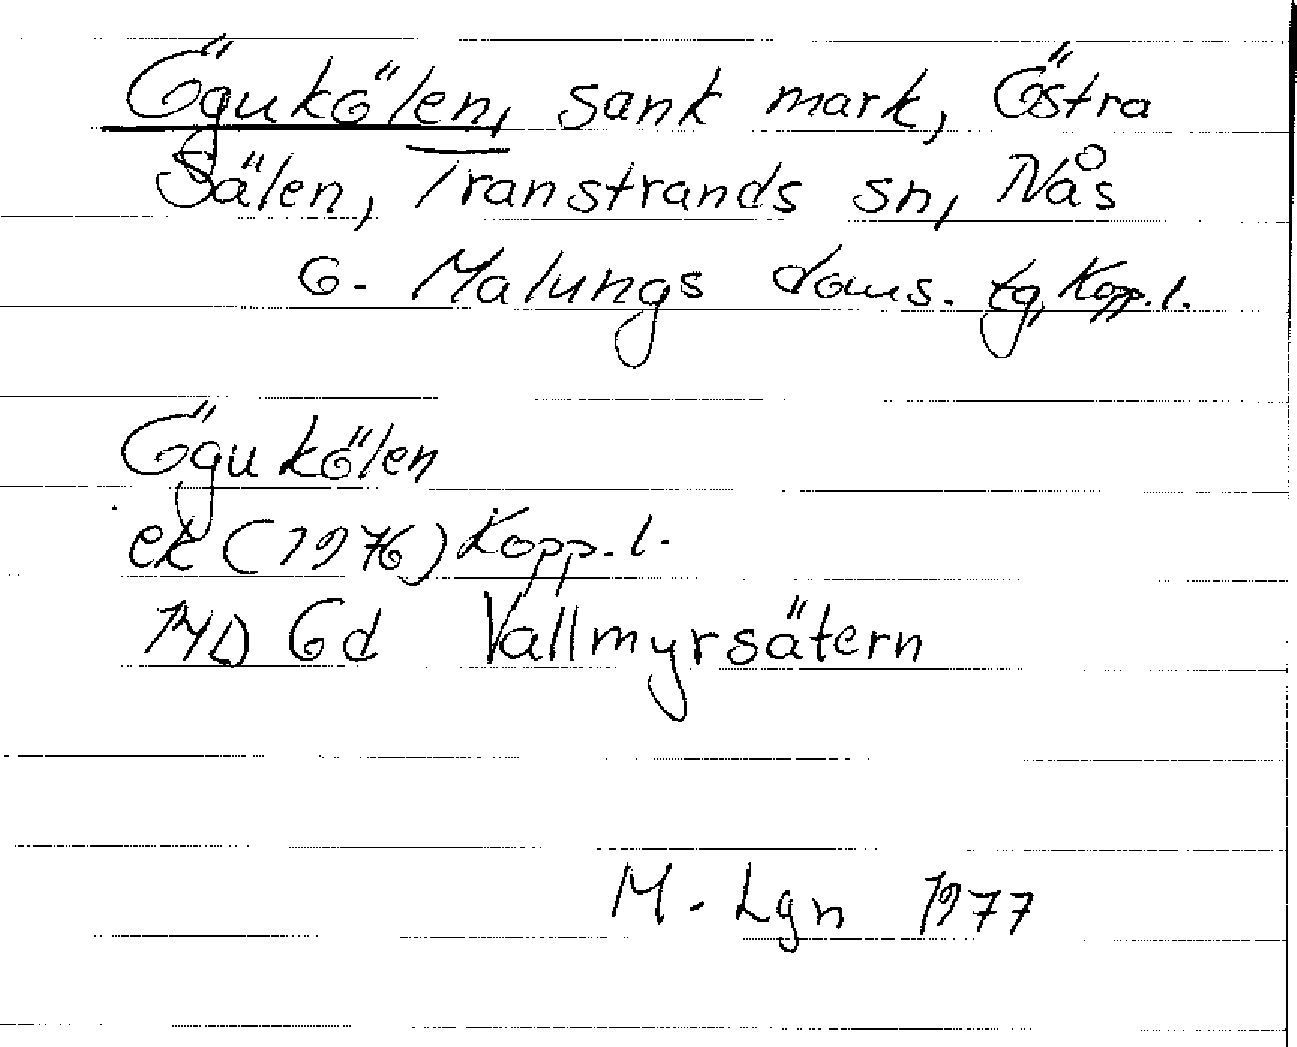 Ögukölen, sank mark, Östra
Sälen, Transtrands sn, Nås
o. Malungs doms. tg, Kopp. l.
Ögukölen
ek (1976) Kopp. l.
13D 6d Vallmyrsätern
M. Lgn 1977